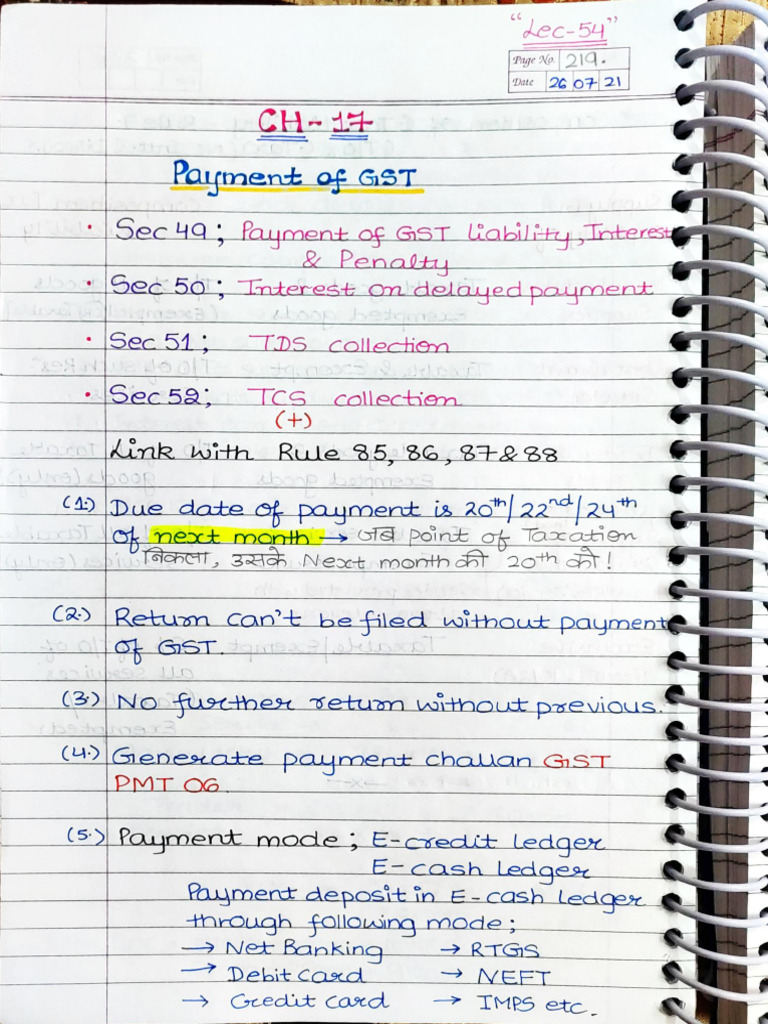 "Lec-54"
Page No. 219.
Date 26 07 21
CH-17
Payment of GST
• Sec 49; Payment of GST liability, Interest
& Penalty
• Sec 50; Interest on delayed payment
• Sec 51; TDS collection
• Sec 52; TCS collection
(+)
Link with Rule 85, 86, 87 & 88
(1.) Due date of payment is 20th/22nd/24th
of next month → जब point of Taxation
निकला, उसके Next month की 20th को!
(2.) Return can't be filed without payment
of GST.
(3.) No further return without previous.
(4.) Generate payment challan GST
PMT 06.
(5.) Payment mode; E-credit ledger
E-cash Ledger
Payment deposit in E-cash ledger
through following mode;
→ Net Banking → RTGS
→ Debit card → NEFT
→ Credit card → IMPS etc.